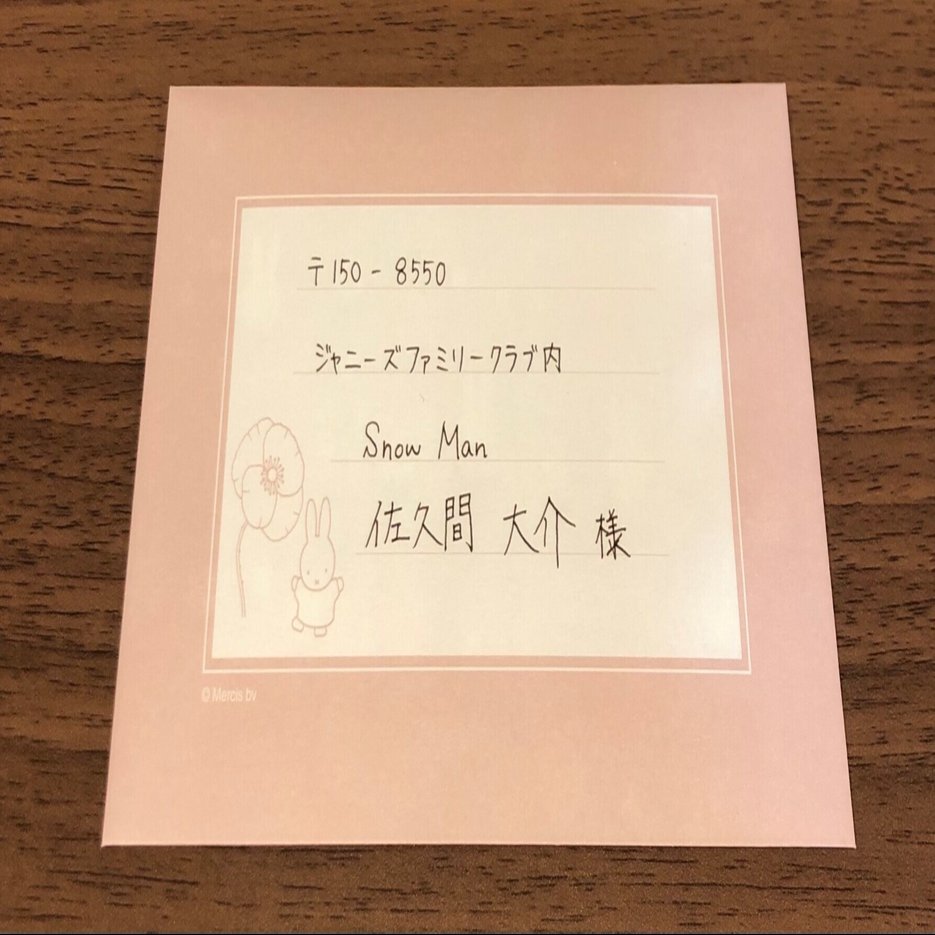 〒150-8550
ジャニーズファミリークラブ内
Snow Man
佐久間 大介 様
© Mercis bv